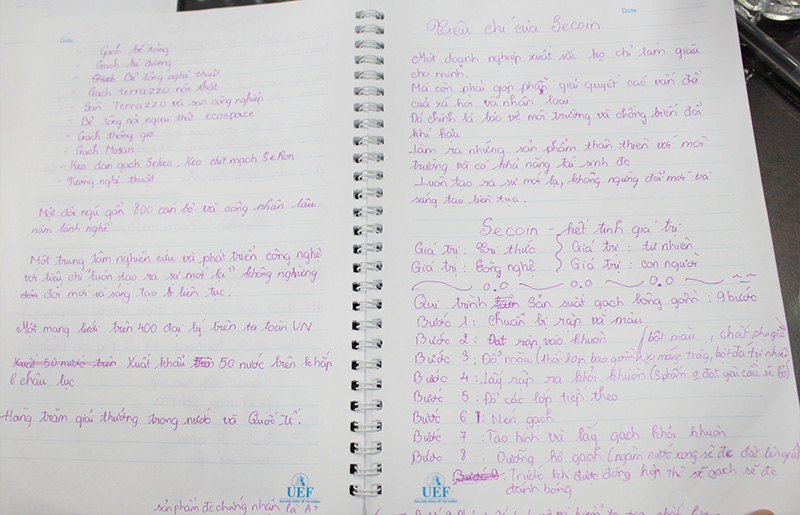 Date:
- Gạch bê tông
- Gạch
- Bê tông nghệ thuật
- Gạch terrazzo nội thất
- Sàn Terrazzo và sàn công nghiệp
- Bê tông nội ngoại thất ecospace
- Gạch thông gió
- Gạch Mosais
- Keo dán gạch Seko, Keo chít mạch
- Tường nghệ thuật
Một đội ngũ gần 800 cán bộ và công nhân lâu
năm lành nghề
Một trung tâm nghiên cứu và phát triển công nghệ
với tiêu chí "luôn tạo ra sự mới lạ" không ngừng
đổi mới và sáng tạo liên tục.
Một mạng lưới trên 400 đại lý trên toàn VN
Xuất 50 nước trên Xuất khẩu 50 nước trên khắp
6 châu lục
Hàng trăm giải thưởng trong nước và Quốc Tế.
UEF
sản phẩm đc chứng nhận là A1
Date:
Tiêu chí của Secoin
Một doanh nghiệp xuất sắc họ chỉ làm giàu
cho mình.
Mà còn phải góp phần giải quyết các vấn đề
của xã hội và nhân loại
Đó chính là bảo vệ môi trường và chống biến đổi
khí hậu
Làm ra những sản phẩm thân thiện với môi
trường và có khả năng tái sinh đc
Luôn tạo ra sự mới lạ, không ngừng đổi mới và
sáng tạo liên tục.
Secoin - kết tinh giá trị
Giá trị : Tri thức Giá trị : tự nhiên
Giá trị : Công nghệ Giá trị : con người
0.0 0.0 0.0
Qui trình sản suất gạch bông gồm : 9 bước
Bước 1 : Chuẩn bị rập và màu
Bước 2 : Đặt rập vào khuôn
bột màu, chất phụ gia
Bước 3 : Đổ màu (hỗn hợp bao gồm xi măng trắng, bột đá tự nhiên
Bước 4 : Lấy rập ra khỏi khuôn (sphẩm o đạt yêu cầu sẽ bỏ)
Bước 5 : Đổ các lớp tiếp theo
Bước 6 : Nén gạch
Bước 7 : Tạo hình và lấy gạch khỏi khuôn
Bước 8 : Dưỡng hộ gạch (ngâm nước xong sẽ đc đặt lên giá)
Bước 9 : Trước khi được đóng hộp thì sẽ gạch sẽ đc
đánh bóng
UEF